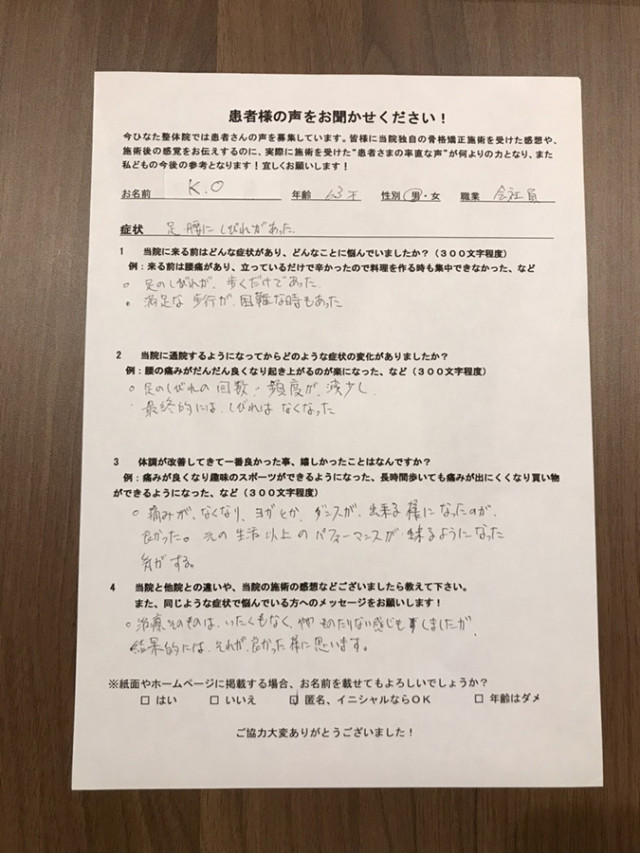 患者様の声をお聞かせください！
今ひなた整体院では患者さんの声を募集しています。皆様に当院独自の骨格矯正施術を受けた感想や、
施術後の感覚をお伝えするのに、実際に施術を受けた"患者さまの率直な声"が何よりの力となり、また
私どもの今後の参考となります！宜しくお願いします！
お名前 K.O 年齢 63才 性別 男・女 職業 会社員
症状 足 腰に しびれがあった。
1 当院に来る前はどんな症状があり、どんなことに悩んでいましたか？（３００文字程度）
例：来る前は腰痛があり、立っているだけで辛かったので料理を作る時も集中できなかった、など
○ 足のしびれが、歩くだけであった
○ 満足な歩行が、困難な時もあった
2 当院に通院するようになってからどのような症状の変化がありましたか？
例：腰の痛みがだんだん良くなり起き上がるのが楽になった、など（３００文字程度）
○ 足のしびれの回数・頻度が、減少し、
最終的には、しびれは なくなった
3 体調が改善してきて一番良かった事、嬉しかったことはなんですか？
例：痛みが良くなり趣味のスポーツができるようになった、長時間歩いても痛みが出にくくなり買い物
ができるようになった、など（３００文字程度）
○ 痛みが、なくなり、ヨガとか、ダンスが、出来る様になったのが、
良かった。元の生活以上のパフォーマンスが出来るようになった
気がする。
4 当院と他院との違いや、当院の施術の感想などございましたら教えて下さい。
また、同じような症状で悩んでいる方へのメッセージをお願いします！
○ 治療そのものは、いたくもなく、ものたりない感じも しましたが、
結果的には、それが、良かった様に思います。
※紙面やホームページに掲載する場合、お名前を載せてもよろしいでしょうか？
□ はい □ いいえ ☑ 匿名、イニシャルならＯＫ □ 年齢はダメ
ご協力大変ありがとうございました！